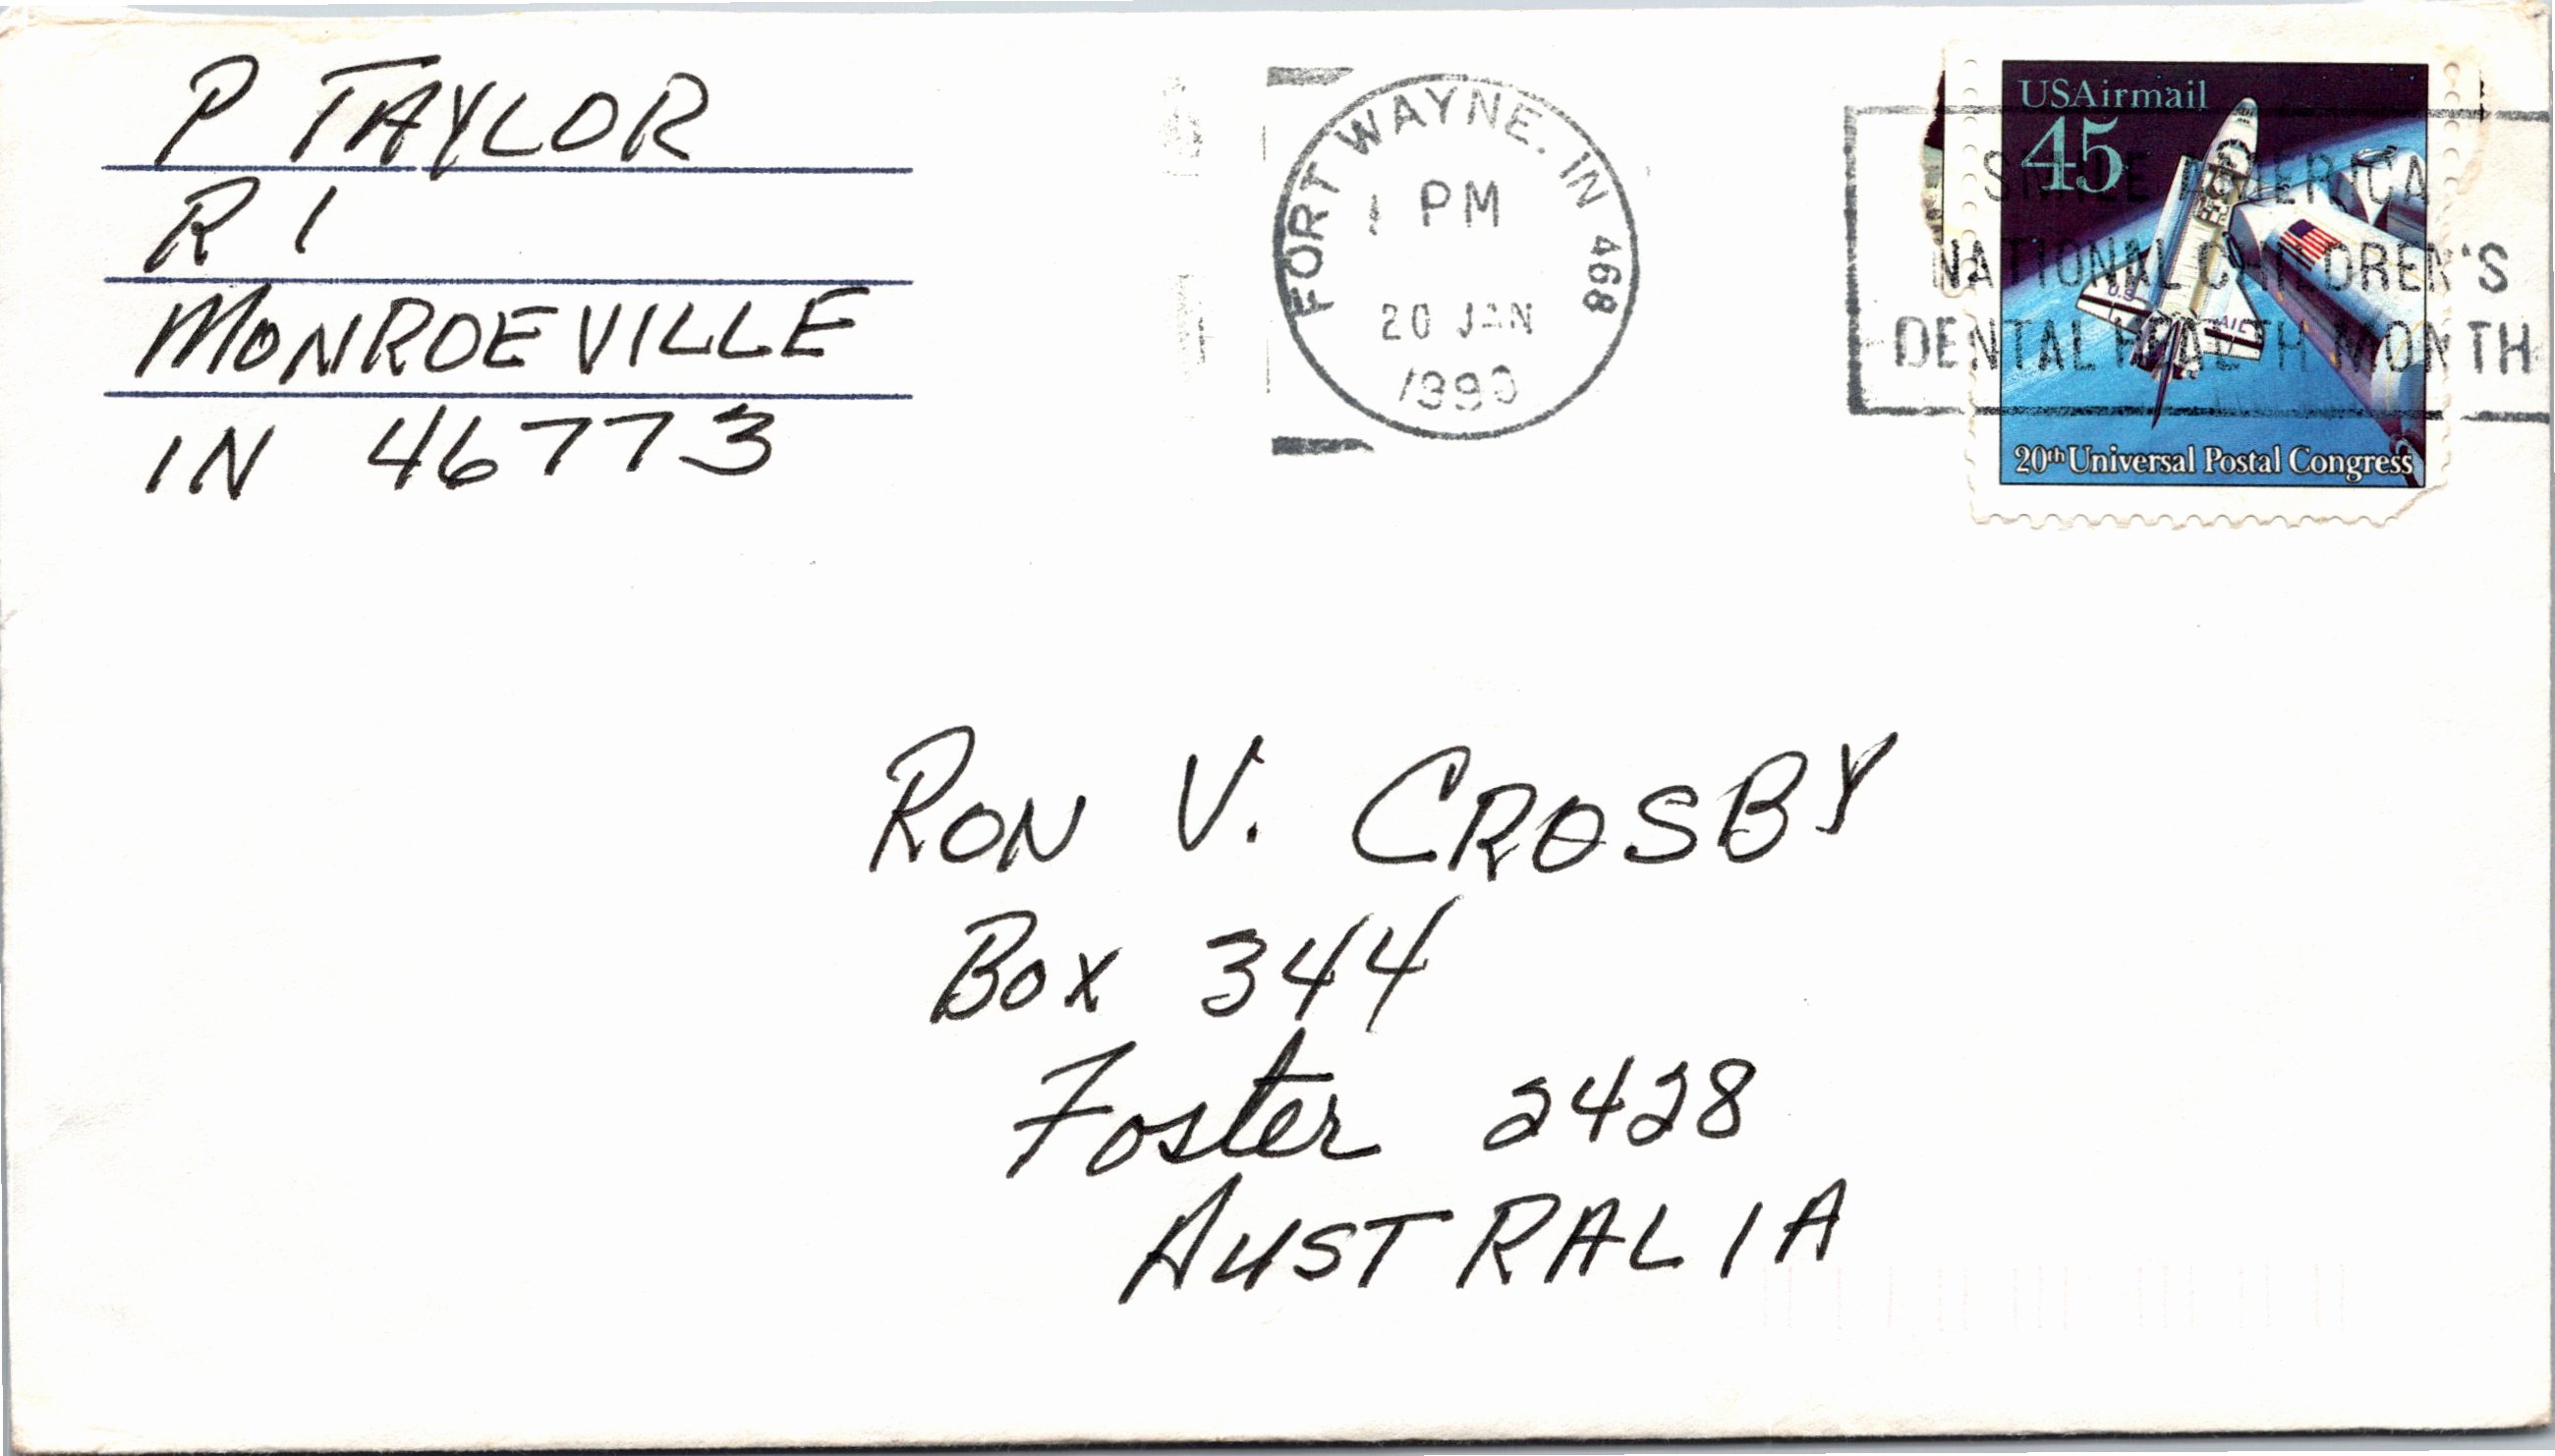 P TAYLOR
R 1
MONROEVILLE
IN 46773
FORT WAYNE. IN 468
1 PM
20 JAN
1990
USAirmail
45
SMILE AMERICA
NATIONAL CHILDREN'S
DENTAL HEALTH MONTH
20th Universal Postal Congress
RON V. CROSBY
Box 344
Foster 2428
AUSTRALIA